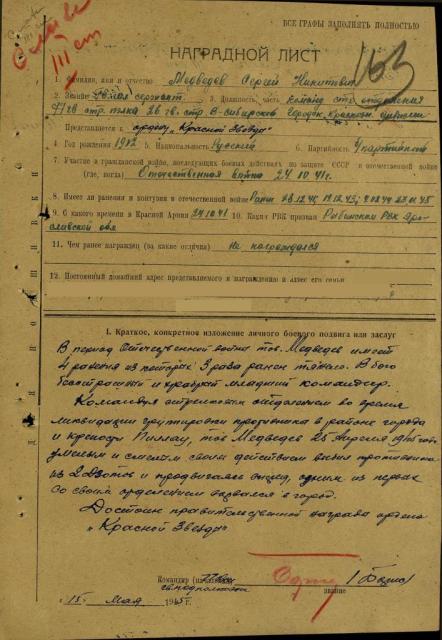 ВСЕ ГРАФЫ ЗАПОЛНЯТЬ ПОЛНОСТЬЮ
163
НАГРАДНОЙ ЛИСТ
1. Фамилия, имя и отчество Медведев Сергей Никитович
2. Звание сержант 3. Должность, часть команд. стр. отделения
стр. полка 26 гв. стр. В-Сибирской Городок. Краснозн. дивизии
Представляется к ордену "Красной Звезда"
4. Год рождения 1912 5. Национальность Русский 6. Партийность
7. Участие в гражданской войне, последующих боевых действиях по защите СССР и отечественной войне
(где, когда) Отечественная война 24.10.41г.
8. Имеет ли ранения и контузии в отечественной войне Ранен
9. С какого времени в Красной Армии 24.10.41 10. Каким РВК призван Рыбинским РВК Яро-
славской обл
11. Чем ранее награжден (за какие отличия) не награждался
12. Постоянный домашний адрес представляемого к награждению и адрес его семьи
I. Краткое, конкретное изложение личного боевого подвига или заслуг
В период Отечественной войны тов. Медведев имеет
4 ранения из которых 3 раза ранен тяжело. В бою
бесстрашный и храбрый младший командир.
Командуя стрелковым отделением во время
ликвидации группировки противника в районе города
и крепости Пиллау, тов Медведев 25 Апреля 1945 года
умелым и смелым своим действием выбил противника
из 2 Дзотов и продвигаясь вперед, одним из первых
со своим отделением ворвался в город.
Достоин правительственной награды ордена
"Красной Звезда"
Командир
гв. подполковник
звание
"15" Мая 1945г.